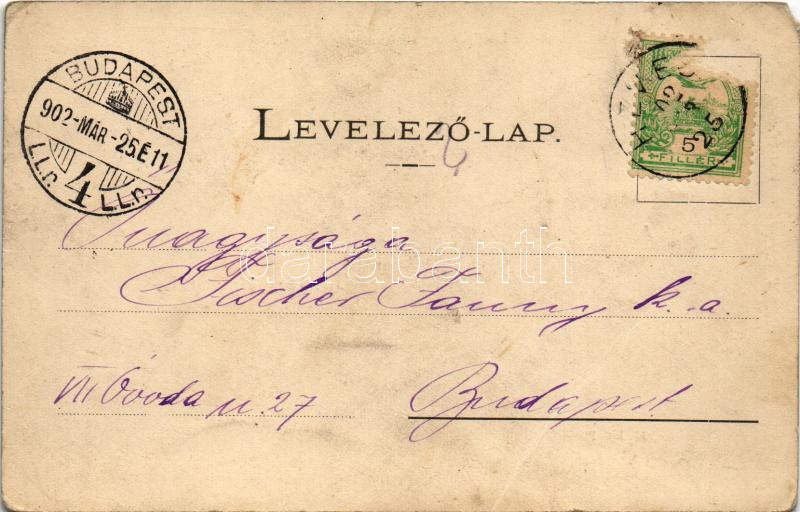 BUDAPEST
902-MÁR-25.É 11
4
LEVELEZŐ-LAP.
5
FILLÉR
Őnagysága
Fischer Fanny k. a.
VII Óvoda u. 27
Budapest
darabanth